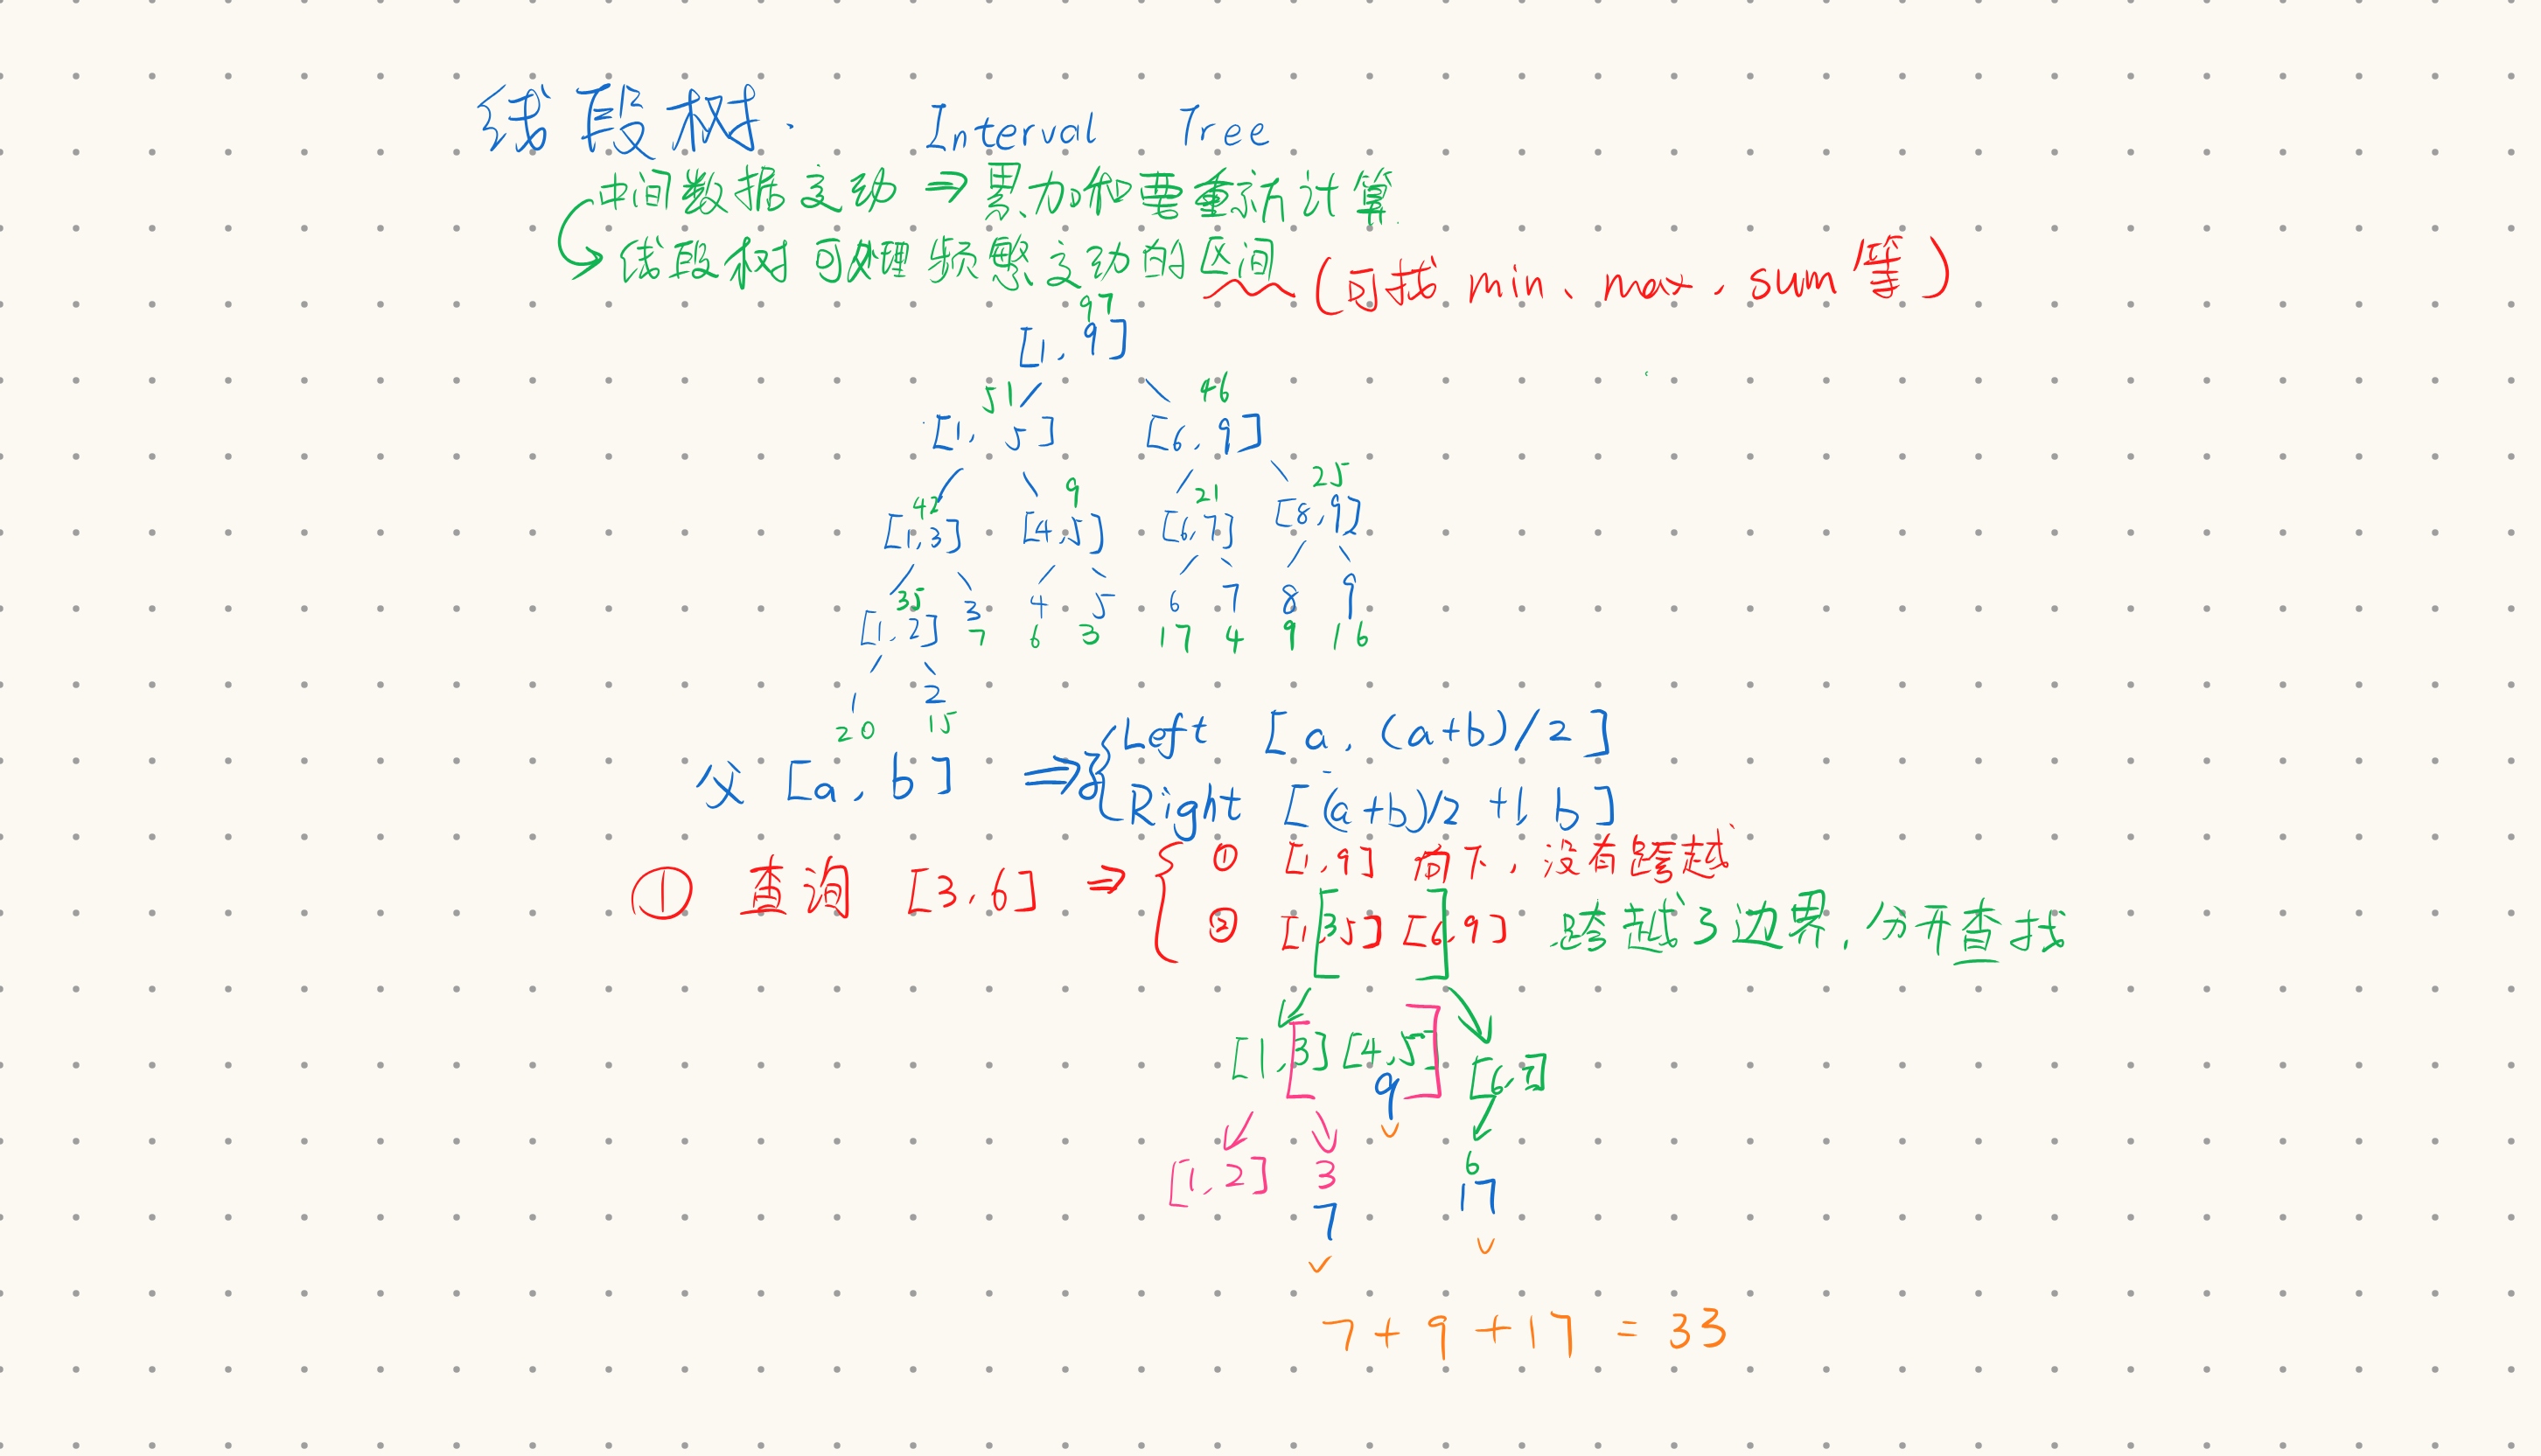 线段树. Interval Tree
中间数据变动 ⇒ 累加和要重新计算
线段树可处理频繁变动的区间 (可找 min、max、sum等)
97
[1, 9]
51 46
[1, 5] [6, 9]
42 9 21 25
[1,3] [4,5] [6,7] [8,9]
35 3 4 5 6 7 8 9
[1,2] 7 6 3 17 4 9 16
1 2
20 15
父 [a, b] ⇒ { Left [a, (a+b)/2]
Right [(a+b)/2 +1, b]
① 查询 [3,6] ⇒ { ① [1,9] 向下,没有跨越
② [1,3 5] [6,9] 跨越了边界,分开查找
[1,3] [4,5] [6,7]
9
[1,2] 3 6
7 17
7 + 9 + 17 = 33